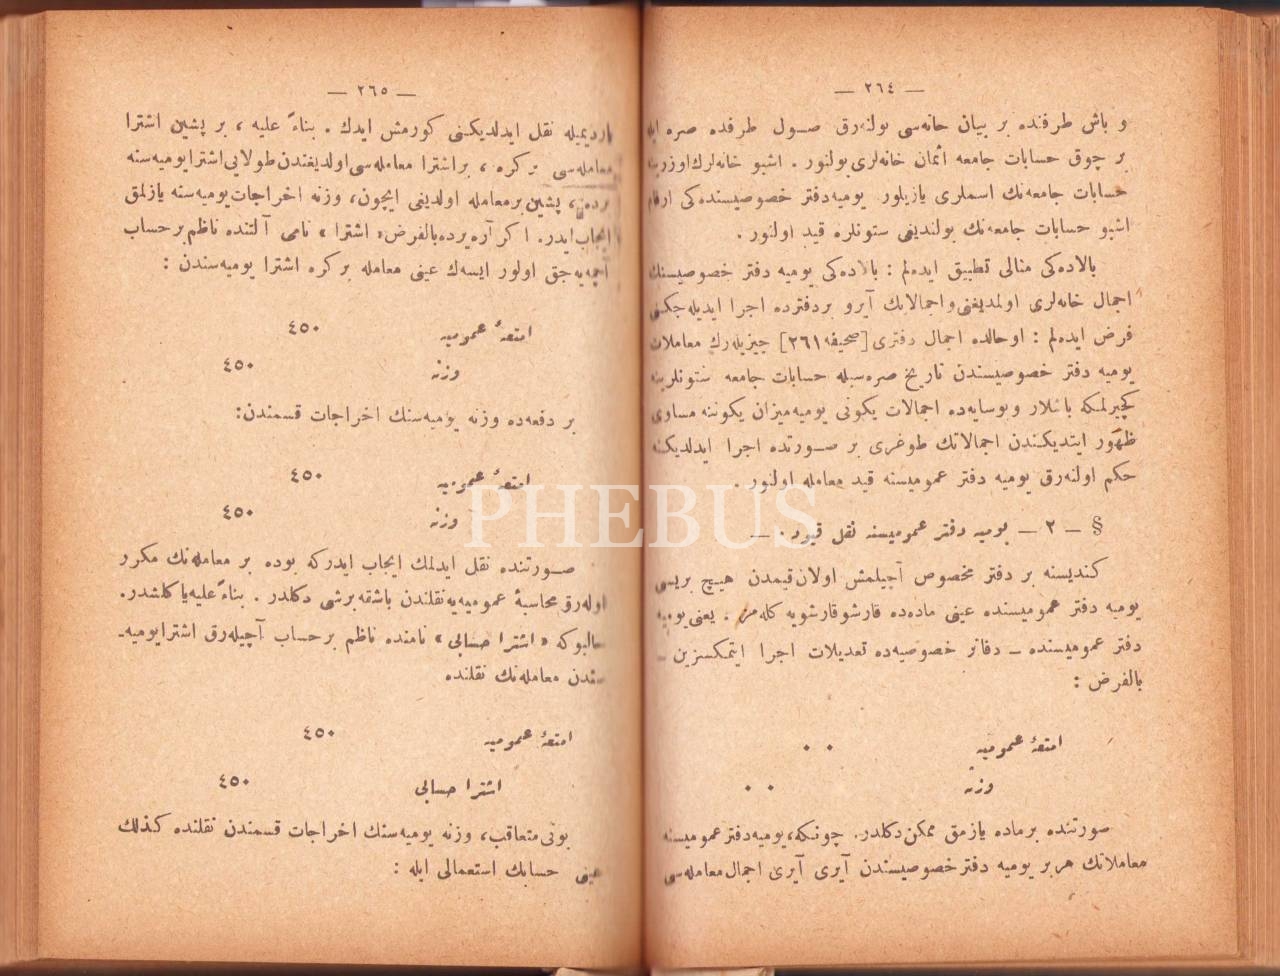 — ٢٦٤ —
و باش طرفنده بر بیان خانه‌سی بولنه‌رق صول طرفده صره ایله
بر چوق حسابات جامعه اثمان خانه‌لری بولنور . اشبو خانه‌لرك اوزرینه
حسابات جامعه‌نك اسملری یازیلور یومیه دفتر خصوصیسنده‌كی ارقام
اشبو حسابات جامعه‌نك بولندیغی ستونلره قید اولنور .
بالاده‌كی مثالی تطبیق ایده‌لم : بالاده‌كی یومیه دفتر خصوصیسنك
اجمال خانه‌لری اولمدیغنی واجمالاتك آیرو بردفترده اجرا ایدیله‌جكنی
فرض ایده‌لم : اوحالده اجمال دفتری [صحیفه ٢٦١] چیزیله‌رك معاملات
یومیه دفتر خصوصیسندن تاریخ صره‌سیله حسابات جامعه ستونلرینه
كچیرلمكه باشلار وبوسایه‌ده اجمالات یكونی یومیه‌میزان یكوننه مساوی
ظهور ایتدیكندن اجمالاتك طوغری بر صورتده اجرا ایدلدیكنه
حكم اولنه‌رق یومیه دفتر عمومیسنه قید معامله اولنور .
§ — ٢ — یومیه دفتر عمومیسنه نقل قیود . —
كندیسنه بر دفتر مخصوص آچیلمش اولان قیمدن هیچ بریسی
یومیه دفتر عمومیسنده عینی ماده‌ده قارشو قارشویه كله‌مز . یعنی یومیه
دفتر عمومیسنده — دفاتر خصوصیه‌ده تعدیلات اجرا ایتمكسزین —
بالفرض :
امتعهٔ عمومیه ٠ ٠
وزنه ٠ ٠
صورتنده برماده یازمق ممكن دكلدر. چونكه، یومیه دفتر عمومیسنه
معاملاتك هر بر یومیه دفتر خصوصیسندن آیری آیری اجمال معامله‌سی
— ٢٦٥ —
یاردیمیله نقل ایدلدیكنی كورمش ایدك . بناءً علیه ، بر پشین اشترا
معامله‌سی بر كره ، بر اشترا معامله‌سی اولدیغندن طولایی اشترا یومیه‌سنه
برده ، پشین بر معامله اولدیغی ایچون، وزنه اخراجات یومیه‌سنه یازلمق
ایجاب ایدر. اكر آره یرده بالفرض « اشترا » نامی آلتنده ناظم بر حساب
آچمه‌یه‌جق اولور ایسه‌ك عینی معامله بر كره اشترا یومیه‌سندن :
امتعهٔ عمومیه ٤٥٠
وزنه ٤٥٠
بر دفعه‌ده وزنه یومیه‌سنك اخراجات قسمندن:
امتعهٔ عمومیه ٤٥٠
وزنه ٤٥٠
صورتنده نقل ایدلمك ایجاب ایدركه بوده بر معامله‌نك مكرر
اوله‌رق محاسبهٔ عمومیه‌یه نقلندن باشقه برشی دكلدر . بناءً علیه یاكلشدر.
حالبوكه « اشترا حسابی » نامنده ناظم بر حساب آچیله‌رق اشترا یومیه‌ـ
سندن معامله‌نك نقلنده
امتعهٔ عمومیه ٤٥٠
اشترا حسابی ٤٥٠
بونی متعاقب، وزنه یومیه‌سنك اخراجات قسمندن نقلنده كذلك
عینی حسابك استعمالی ایله :
PHEBUS